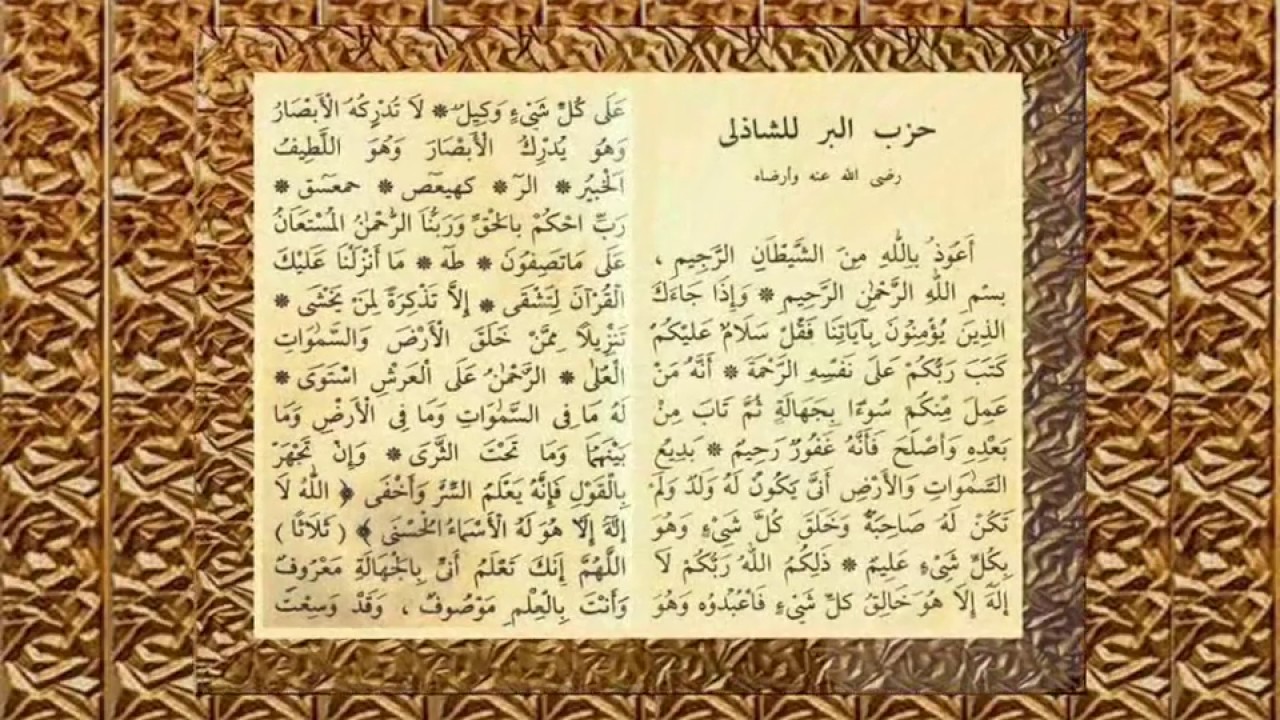 حزب البر للشاذلى
رضى الله عنه وأرضاه
أَعُوذُ بِاللهِ مِنَ الشَّيْطَانِ الرَّجِيمِ ،
بِسْمِ اللهِ الرَّحْمٰنِ الرَّحِيمِ * وَإِذَا جَاءَكَ
الَّذِينَ يُؤْمِنُونَ بِآيَاتِنَا فَقُلْ سَلَامٌ عَلَيْكُمْ
كَتَبَ رَبُّكُمْ عَلَى نَفْسِهِ الرَّحْمَةَ * أَنَّهُ مَنْ
عَمِلَ مِنْكُمْ سُوءًا بِجَهَالَةٍ ثُمَّ تَابَ مِنْ
بَعْدِهِ وَأَصْلَحَ فَأَنَّهُ غَفُورٌ رَحِيمٌ * بَدِيعُ
السَّمٰوَاتِ وَالْأَرْضِ أَنَّى يَكُونُ لَهُ وَلَدٌ وَلَمْ
تَكُنْ لَهُ صَاحِبَةٌ وَخَلَقَ كُلَّ شَيْءٍ وَهُوَ
بِكُلِّ شَيْءٍ عَلِيمٌ * ذَلِكُمُ اللهُ رَبُّكُمْ لَا
إِلَهَ إِلَّا هُوَ خَالِقُ كُلِّ شَيْءٍ فَاعْبُدُوهُ وَهُوَ
عَلَى كُلِّ شَيْءٍ وَكِيلٌ * لَا تُدْرِكُهُ الْأَبْصَارُ
وَهُوَ يُدْرِكُ الْأَبْصَارَ وَهُوَ اللَّطِيفُ
الْخَبِيرُ * الٓرٓ * كهيعٓصٓ * حمعٓسٓقٓ *
رَبِّ احْكُمْ بِالْحَقِّ وَرَبُّنَا الرَّحْمٰنُ الْمُسْتَعَانُ
عَلَى مَا تَصِفُونَ * طٰهٓ * مَا أَنْزَلْنَا عَلَيْكَ
الْقُرْآنَ لِتَشْقَى * إِلَّا تَذْكِرَةً لِمَنْ يَخْشَى *
تَنْزِيلًا مِمَّنْ خَلَقَ الْأَرْضَ وَالسَّمٰوَاتِ
الْعُلَى * الرَّحْمٰنُ عَلَى الْعَرْشِ اسْتَوَى *
لَهُ مَا فِى السَّمٰوَاتِ وَمَا فِى الْأَرْضِ وَمَا
بَيْنَهُمَا وَمَا تَحْتَ الثَّرَى * وَإِنْ تَجْهَرْ
بِالْقَوْلِ فَإِنَّهُ يَعْلَمُ السِّرَّ وَأَخْفَى ﴿ اللهُ لَا
إِلَهَ إِلَّا هُوَ لَهُ الْأَسْمَاءُ الْحُسْنَى ﴾ ( ثَلَاثًا )
اللَّهُمَّ إِنَّكَ تَعْلَمُ أَنِّى بِالْجَهَالَةِ مَعْرُوفٌ
وَأَنْتَ بِالْعِلْمِ مَوْصُوفٌ ، وَقَدْ وَسِعْتَ